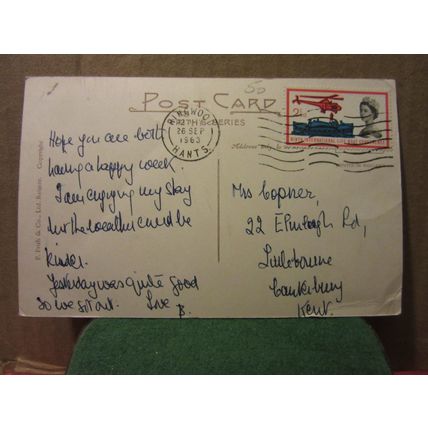 50
POST CARD
FRITH SERIES
RINGWOOD
12-PM
26 SEP
1963
HANTS.
2½D
NINTH INTERNATIONAL LIFE-BOAT CONFERENCE
Address only to be written
F. Frith & Co., Ltd. Reigate. Copyright.
Hope you are both
having a happy week.
I am enjoying my stay
but the weather could be
kinder.
Yesterday was quite good
so we sat out. Love
B.
Mrs Copner,
22 Elmleigh Rd,
Littlebourne
Canterbury
Kent.